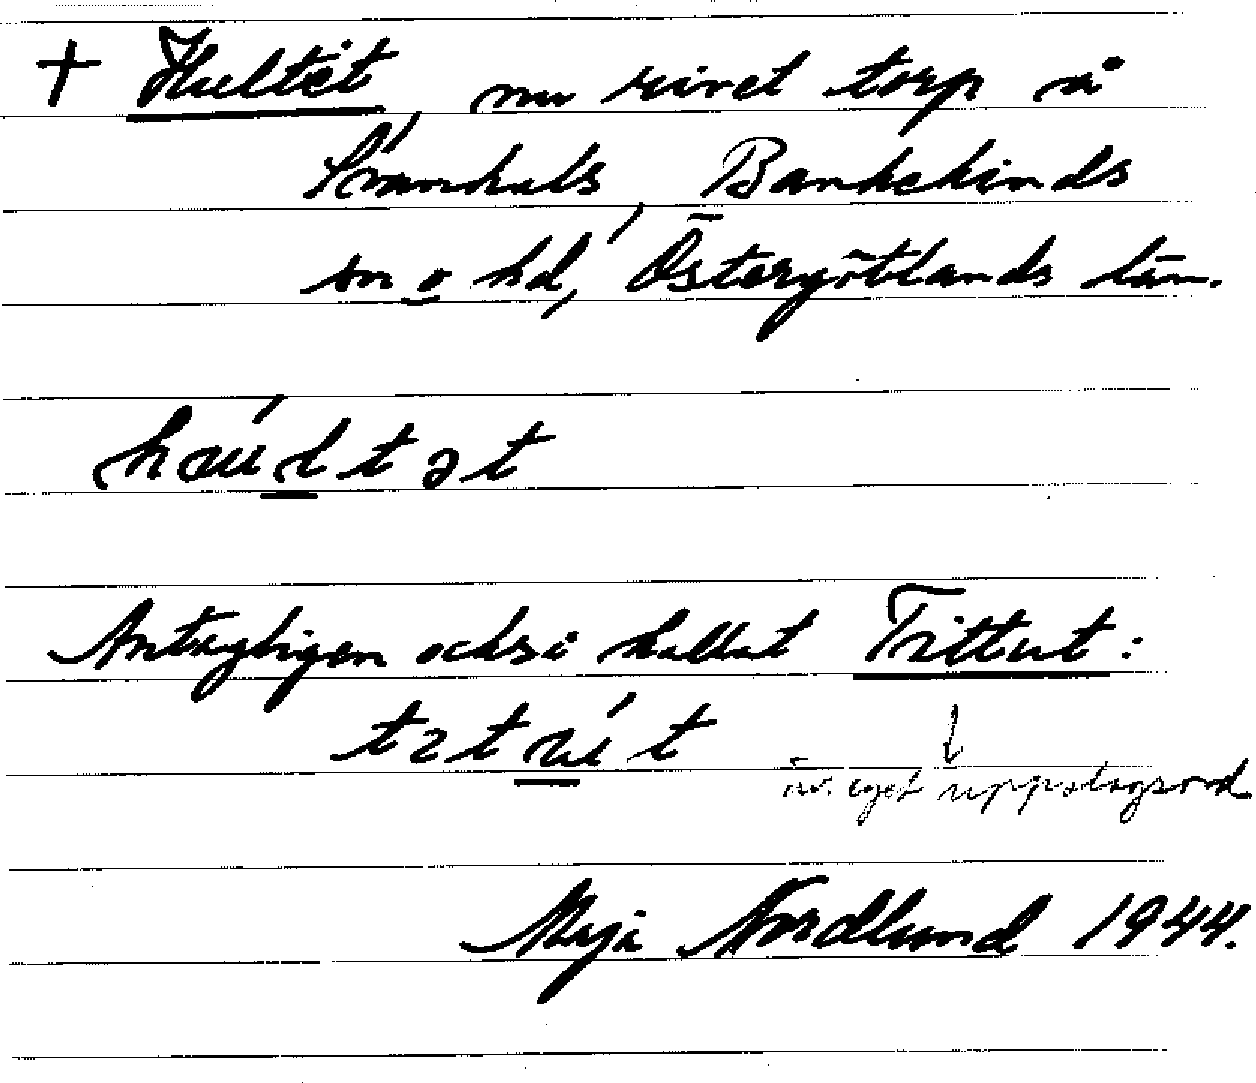 † Hultet, nu rivet torp å
Svanhals, Bankekinds
sn o hd, Östergötlands län.
Antagligen också kallat Tittut:
äv. eget uppslagsord
Maja Nordlund 1944.